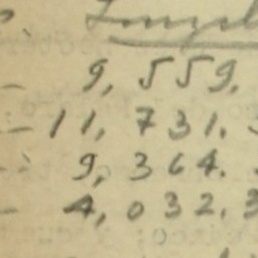 – 9,559.
– 11,731.3
– 9,364.
– 4,032.3